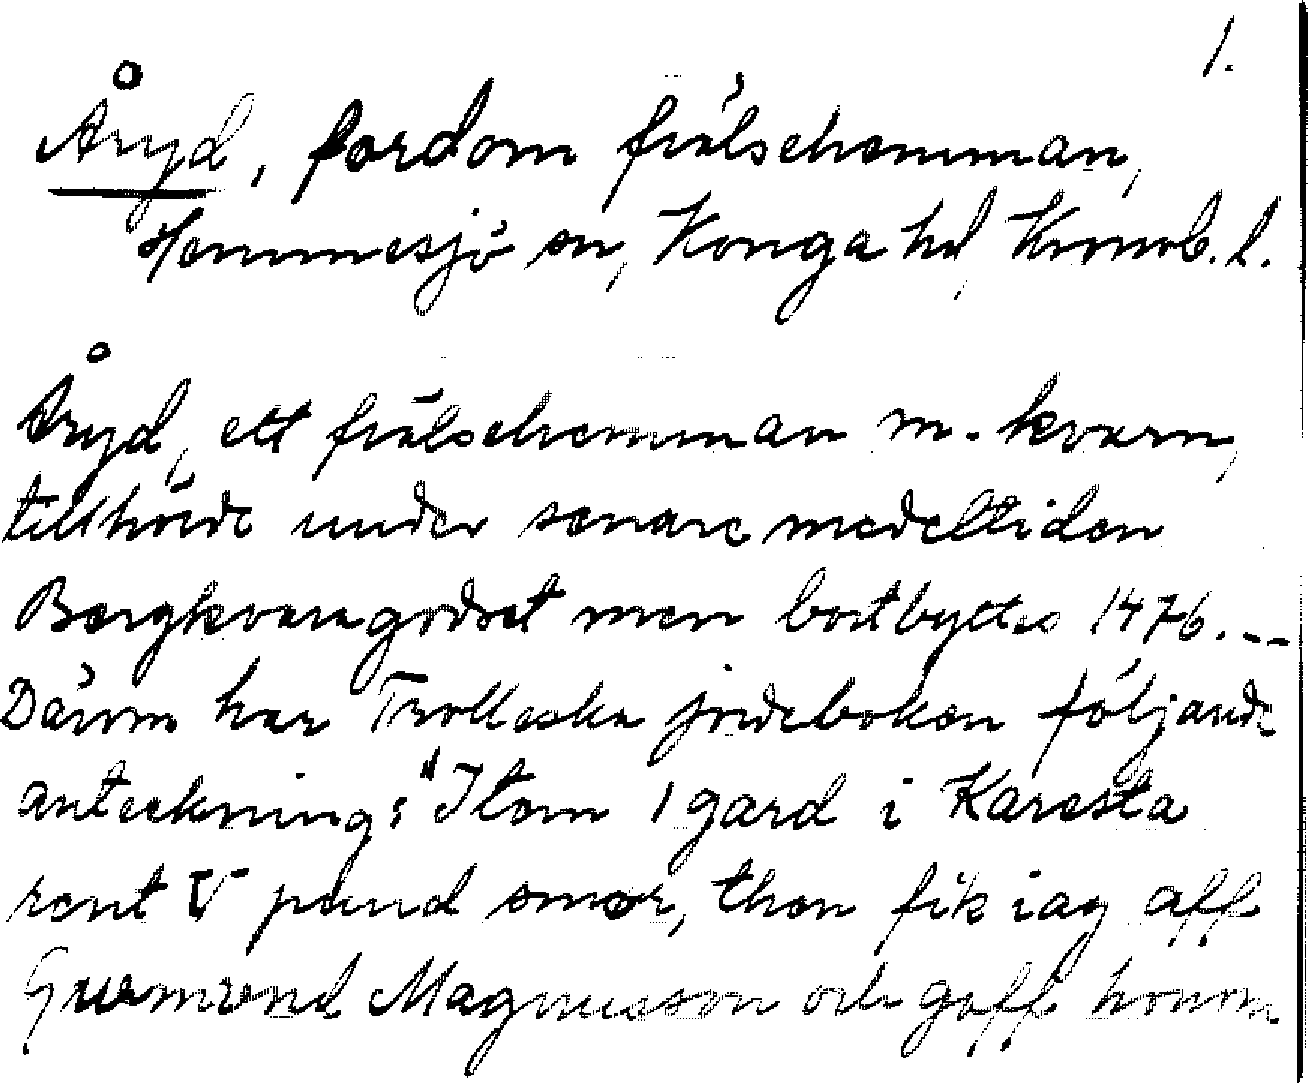 1.
Åryd, fordom frälsehemman,
Hemmesjö sn, Konga hd, Kronob. l.
Åryd, ett frälsehemman m. kvarn,
tillhörde under senare medeltiden
Bergkvaragodset men bortbyttes 1476. --
Därom har Trolleska jordeboken följande
anteckning: "Item 1 gard i Karesta
rent V pund smør, then fik iag aff
Magnusson och gaff honom